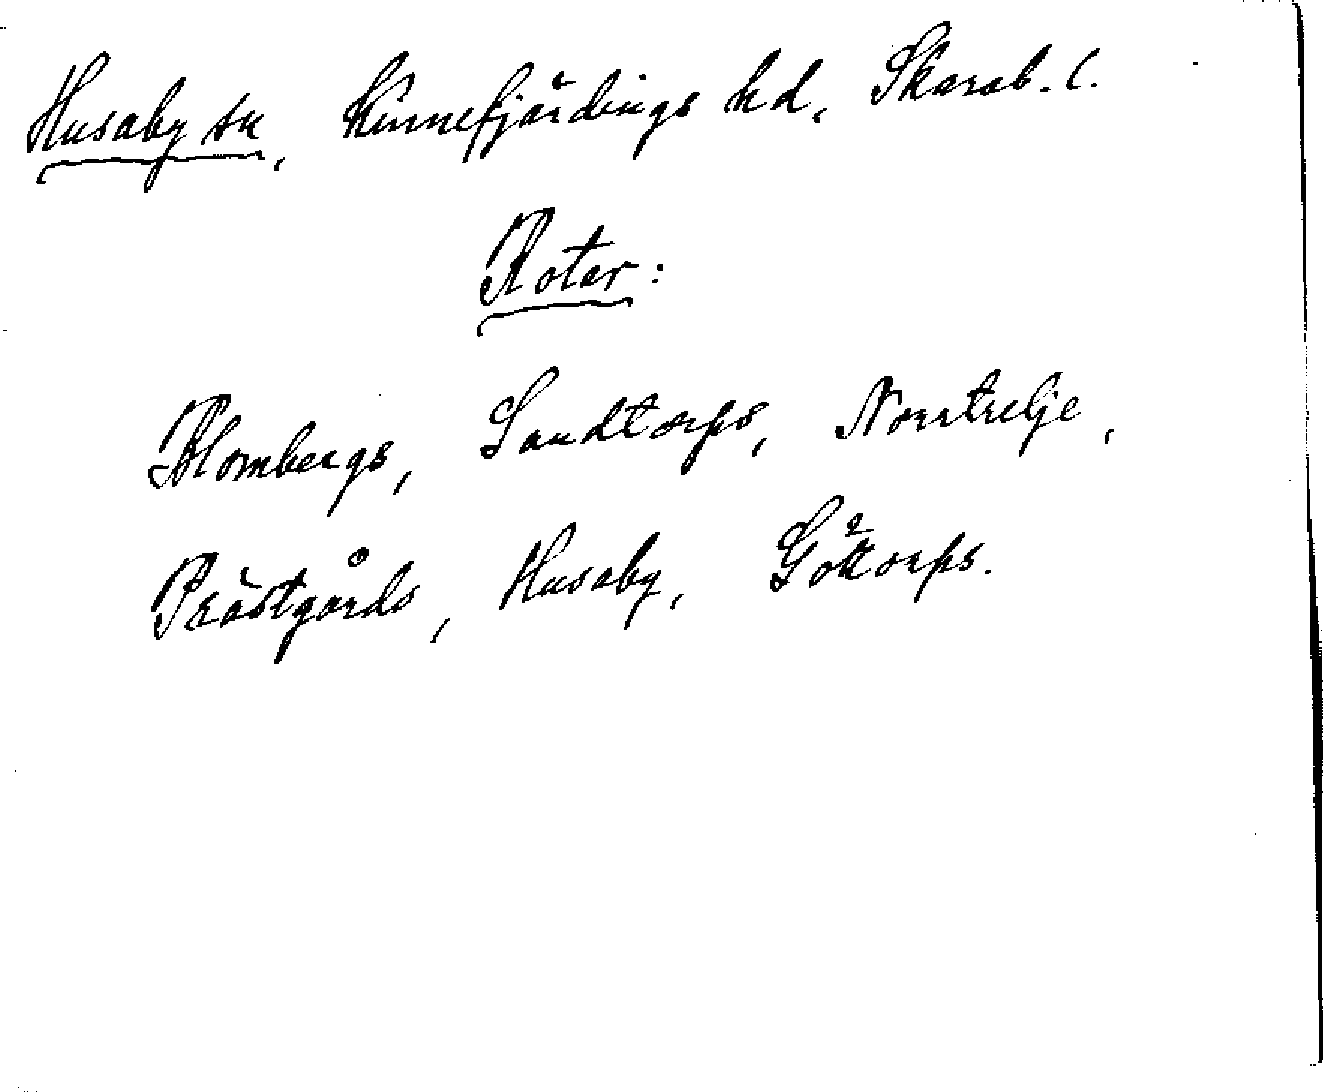 Husaby sn, Kinnefjärdings hd, Skarab. l.
Roter:
Blombergs, Sandtorps, Norrtelje,
Prästgårds, Husaby, Götorps.